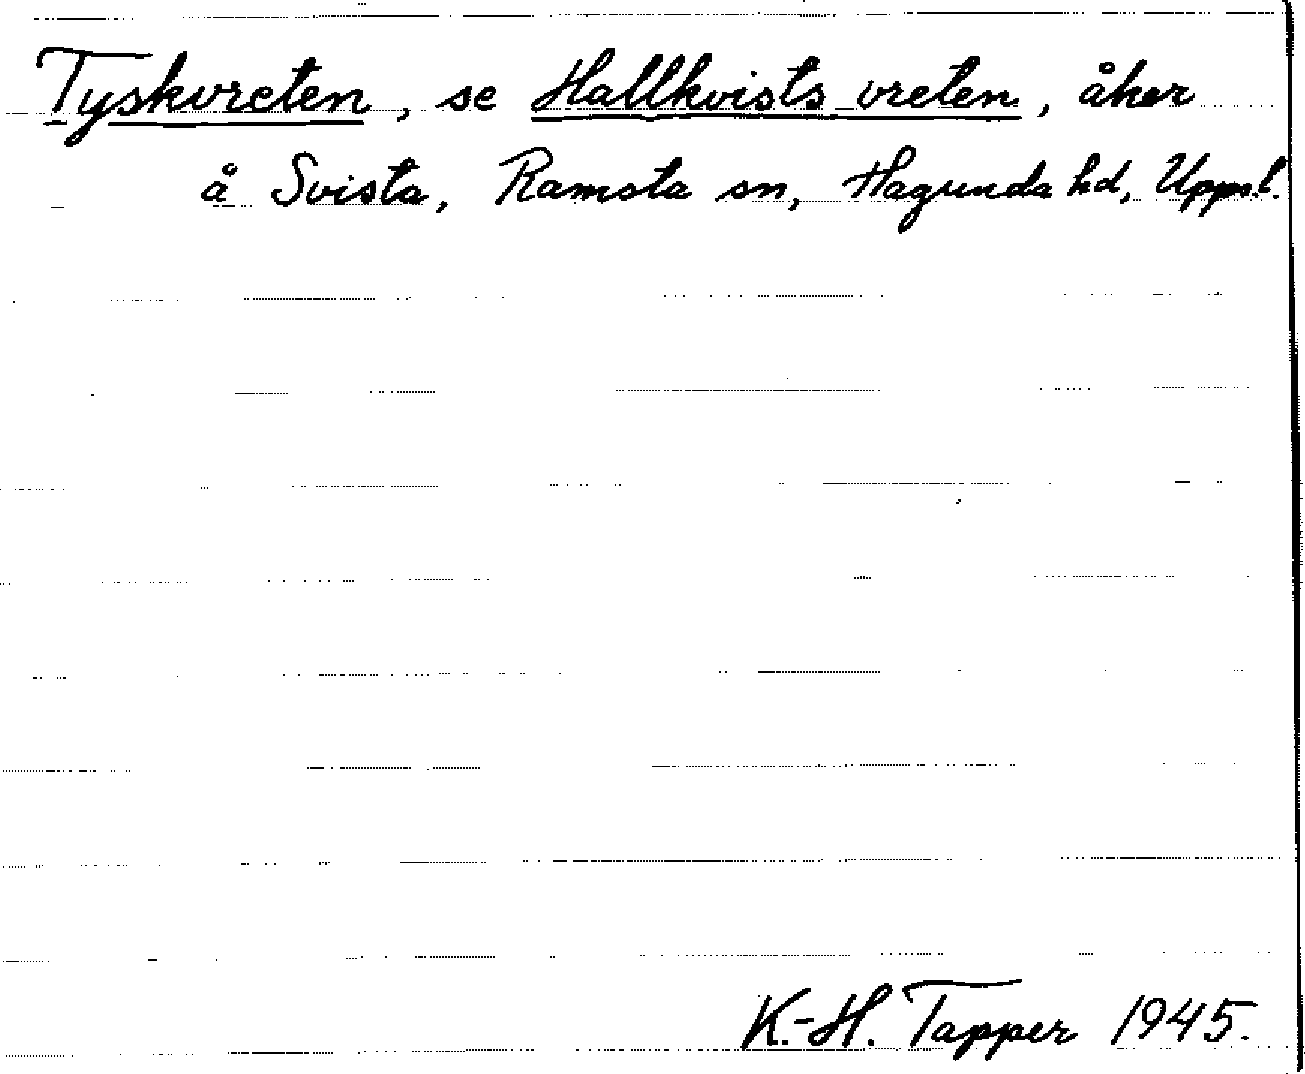 Tyskvreten, se Hallkvists vreten, åker
å Svista, Ramsta sn, Hagunda hd, Uppl.
K.-H. Tapper 1945.